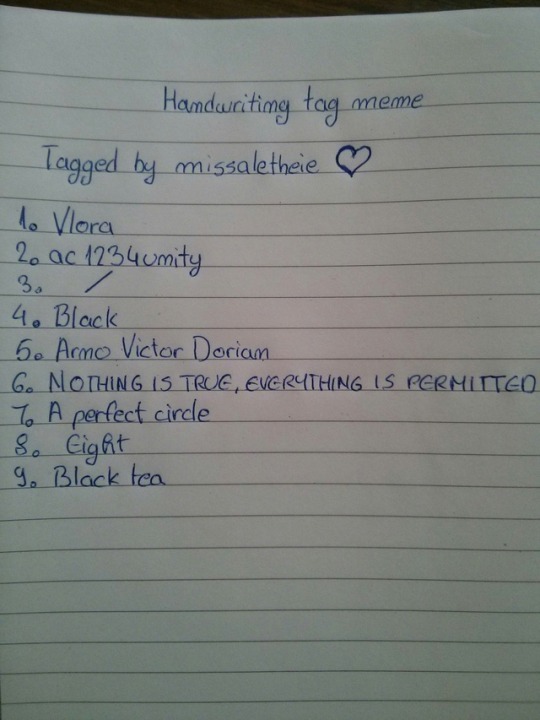 Handwriting tag meme
Tagged by missaletheie ♡
1. Vlora
2. ac1234unity
3. /
4. Black
5. Arno Victor Dorian
6. NOTHING IS TRUE, EVERYTHING IS PERMITTED
7. A perfect circle
8. Eight
9. Black tea